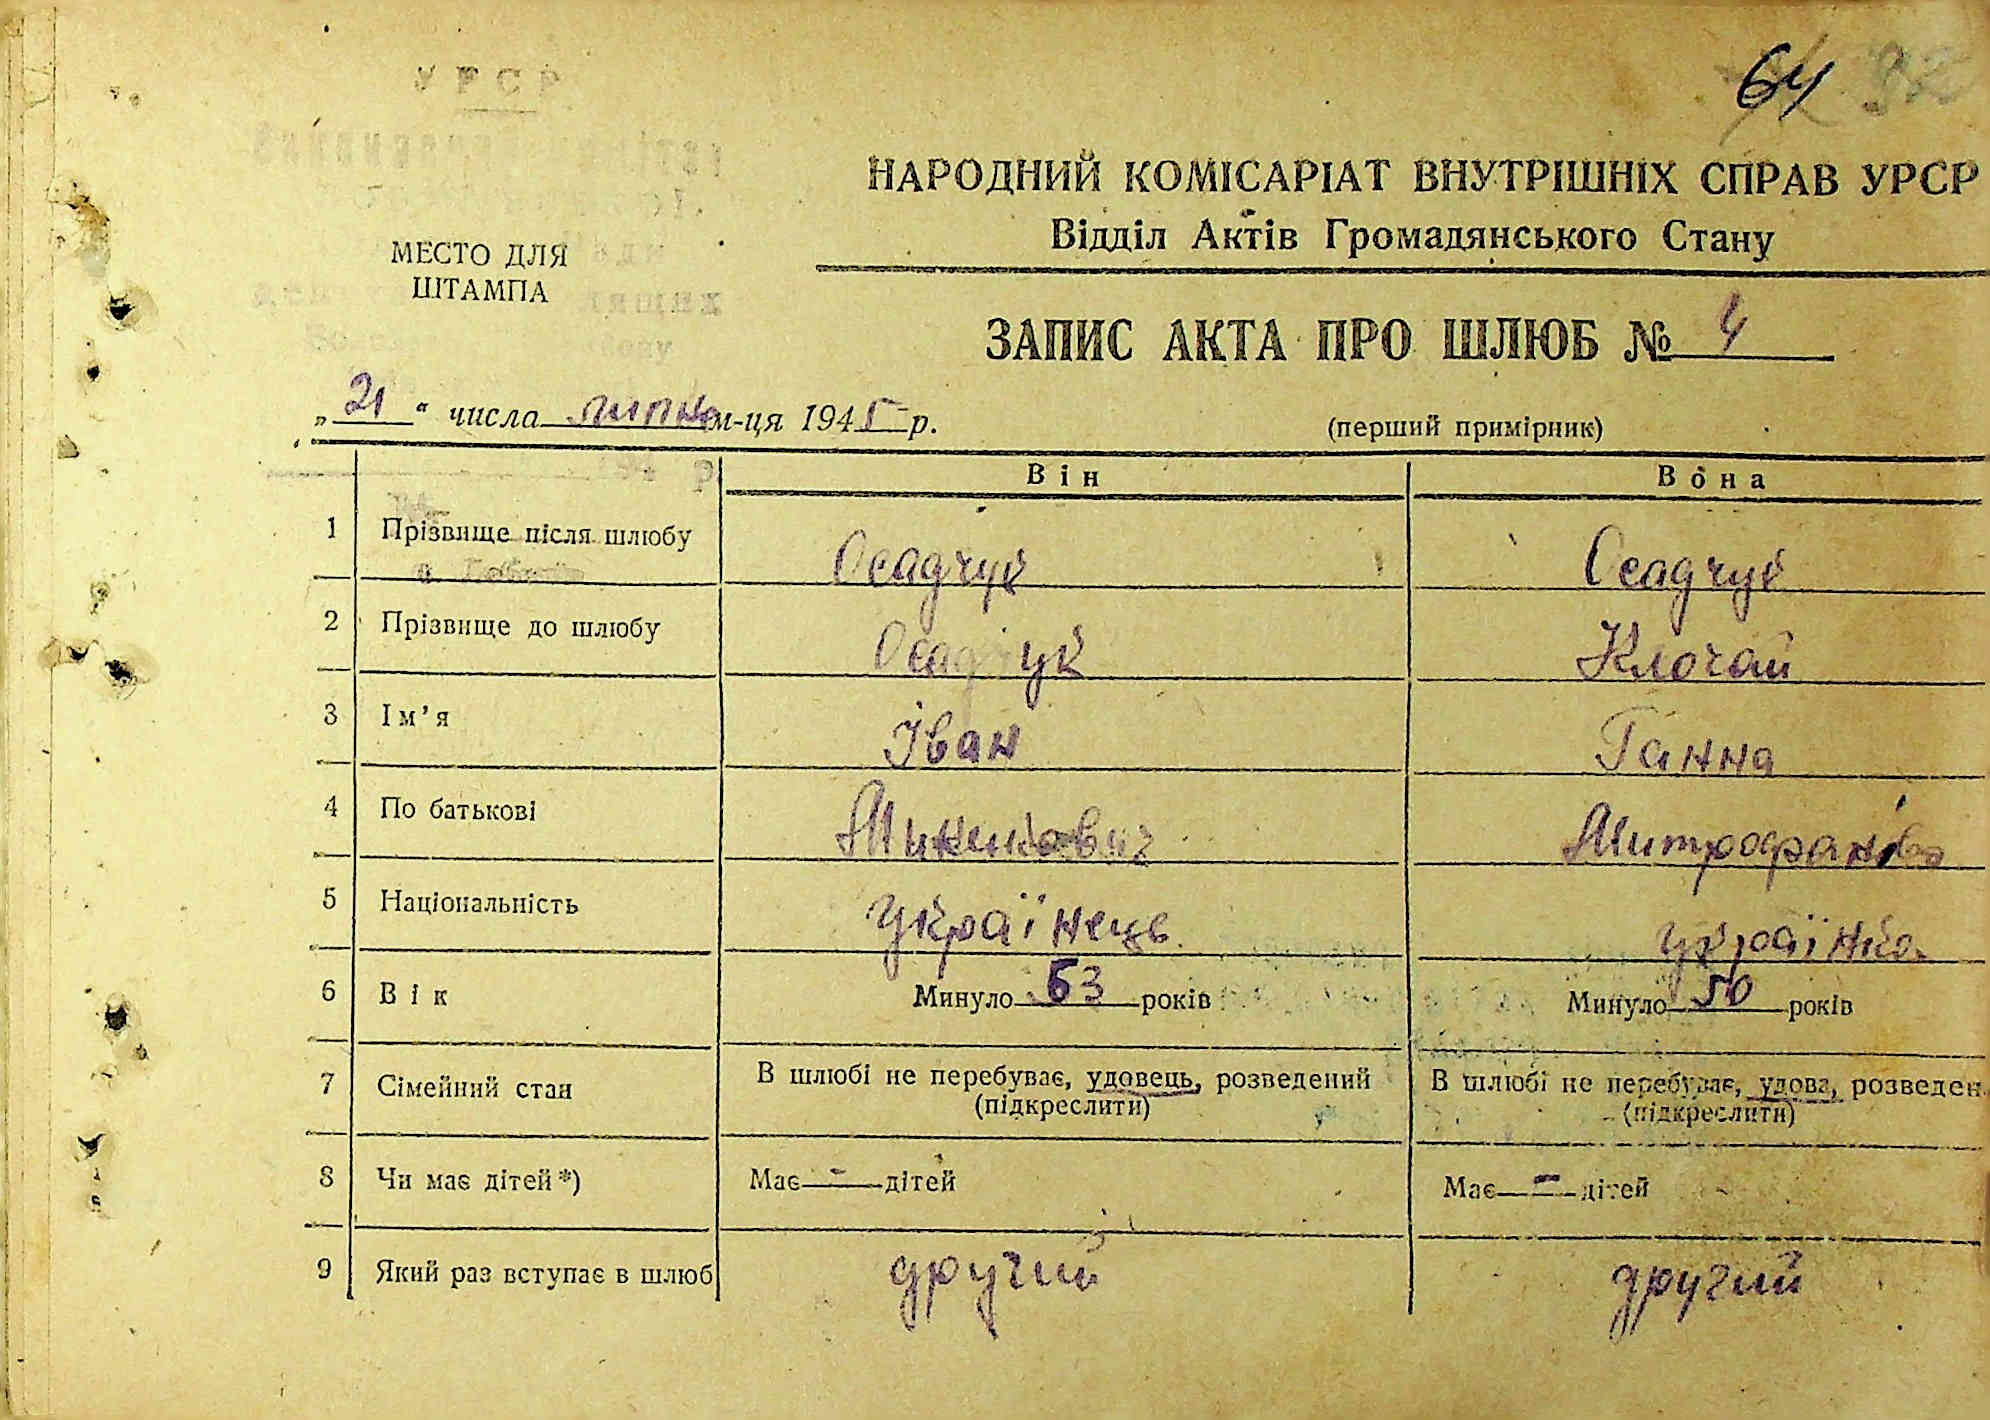 64
НАРОДНИЙ КОМІСАРІАТ ВНУТРІШНІХ СПРАВ УРСР
Відділ Актів Громадянського Стану
МЕСТО ДЛЯ
ШТАМПА
ЗАПИС АКТА ПРО ШЛЮБ № 4
„21“ числа липня м-ця 1945 р.
(перший примірник)
Він Вона
1 Прізвище після шлюбу Осадчук Осадчук
2 Прізвище до шлюбу Осадчук Клочай
3 Ім’я Іван Ганна
4 По батькові Митрофанівна
5 Національність Українець українка
6 Вік Минуло 53 років Минуло 50 років
7 Сімейний стан В шлюбі не перебуває, удовець, розведений В шлюбі не перебуває, удова, розведен
(підкреслити) (підкреслити)
8 Чи має дітей*) Має - дітей Має - дітей
9 Який раз вступає в шлюб другий другий